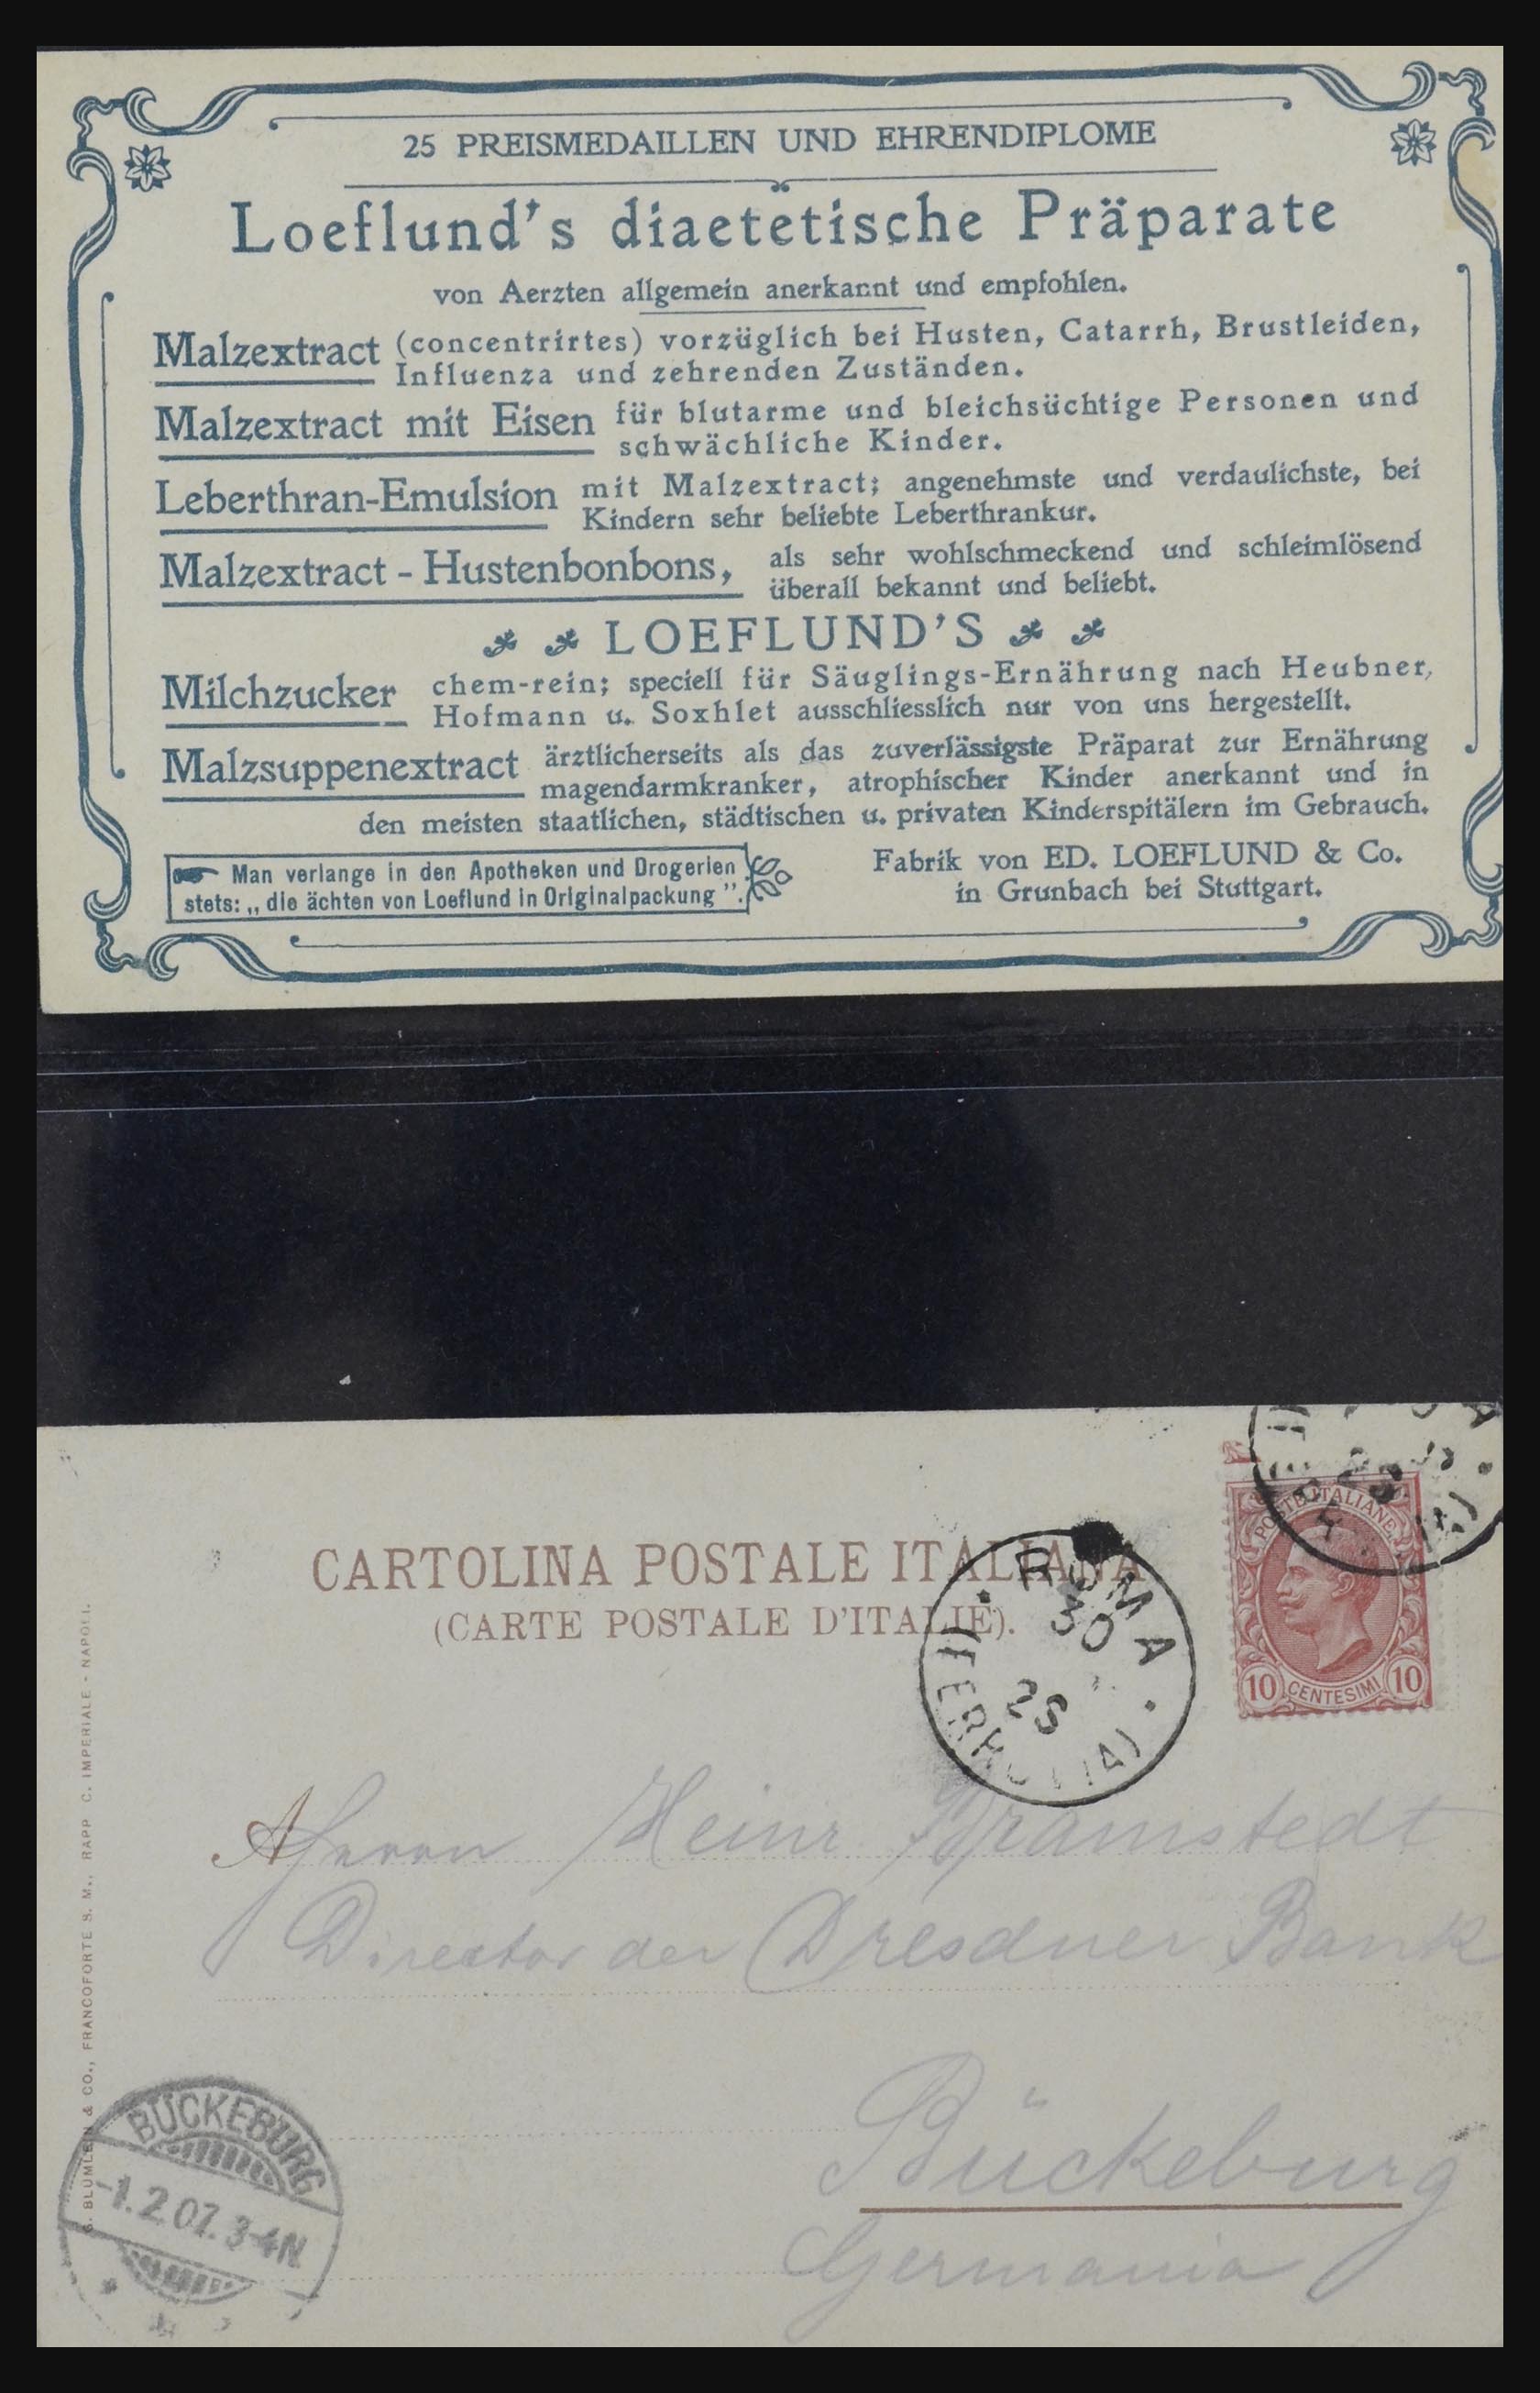 25 PREISMEDAILLEN UND EHRENDIPLOME
Loeflund's diaetetische Präparate
von Aerzten allgemein anerkannt und empfohlen.
Malzextract (concentrirtes) vorzüglich bei Husten, Catarrh, Brustleiden,
Influenza und zehrenden Zuständen.
Malzextract mit Eisen für blutarme und bleichsüchtige Personen und
schwächliche Kinder.
Leberthran-Emulsion mit Malzextract; angenehmste und verdaulichste, bei
Kindern sehr beliebte Leberthrankur.
Malzextract - Hustenbonbons, als sehr wohlschmeckend und schleimlösend
überall bekannt und beliebt.
LOEFLUND'S
Milchzucker chem-rein; speciell für Säuglings-Ernährung nach Heubner,
Hofmann u. Soxhlet ausschliesslich nur von uns hergestellt.
Malzsuppenextract ärztlicherseits als das zuverlässigste Präparat zur Ernährung
magendarmkranker, atrophischer Kinder anerkannt und in
den meisten staatlichen, städtischen u. privaten Kinderspitälern im Gebrauch.
Man verlange in den Apotheken und Drogerien
stets: „die ächten von Loeflund in Originalpackung".
Fabrik von ED. LOEFLUND & Co.
in Grunbach bei Stuttgart.
CARTOLINA POSTALE ITALIANA
(CARTE POSTALE D'ITALIE).
POSTE ITALIANE
10 CENTESIMI 10
ROMA
30
Herrn Heinr Bramstedt
Director der Dresdner Bank
Bückeburg
Germania
BÜCKEBURG
-1.2.07. 3-4N
. BLÜMLEIN & CO., FRANCOFORTE S. M., RAPP C. IMPERIALE - NAPOLI.